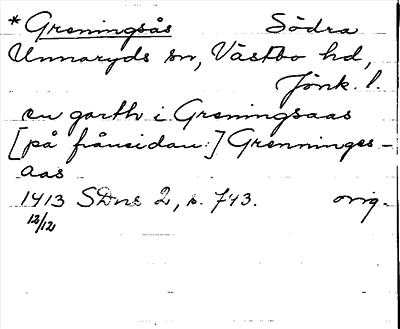 * Greningsås Södra
Unnaryds sn, Västbo hd,
Jönk. l.
en garth i Greningsaas
[på frånsidan:] Grenninges-
aas
1413 SDns 2, s. 743. orig.
12/12